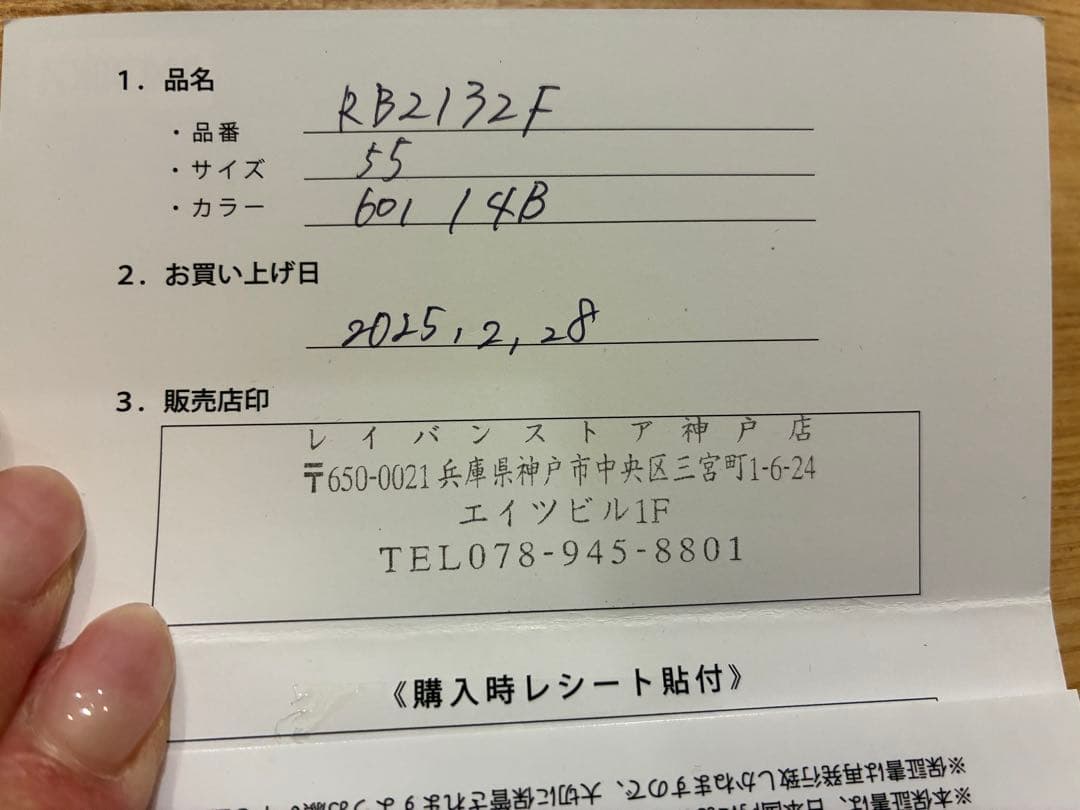 1. 品名
・品番 RB2132F
・サイズ 55
・カラー 601 / 4B
2. お買い上げ日
2025, 2, 28
3. 販売店印
レイバンストア神戸店
〒650-0021 兵庫県神戸市中央区三宮町1-6-24
エイツビル1F
TEL078-945-8801
《購入時レシート貼付》
※保証書は再発行致しかねますので、大切に保管されますよう
※本保証書は、日本国内